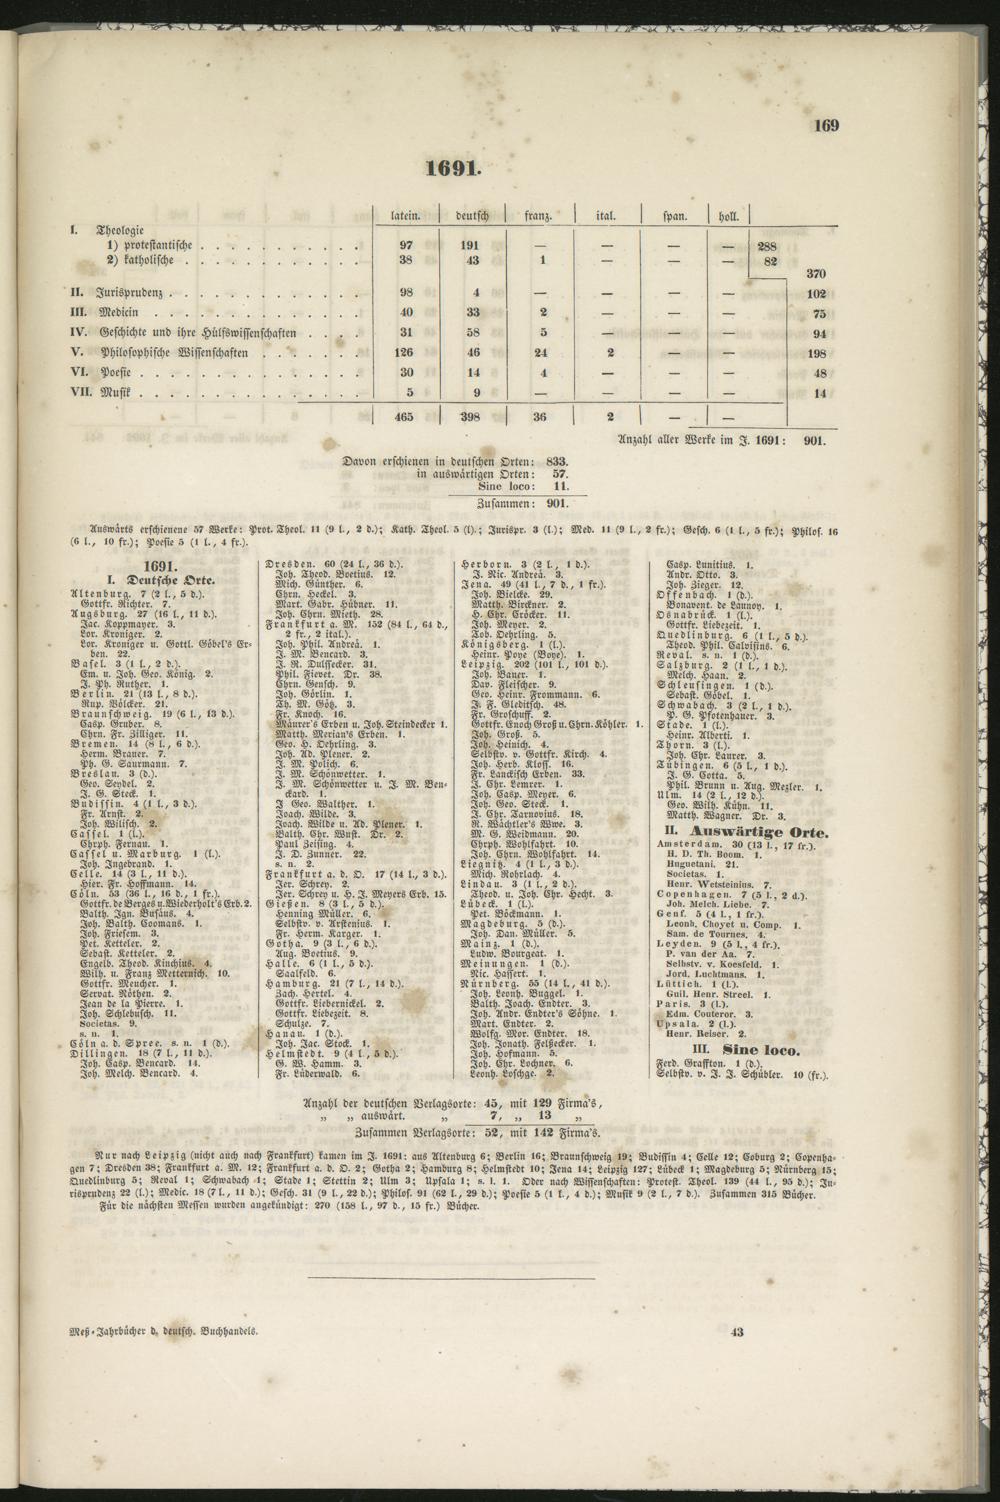 169
1691.
latein. deutsch franz. ital. span. holl.
I. Theologie
1) protestantische . . . . . . . . . . . 97 191 — — — — 288
2) katholische . . . . . . . . . . . . 38 43 1 — — — 82
370
II. Jurisprudenz . . . . . . . . . . . . . 98 4 — — — — 102
III. Medicin . . . . . . . . . . . . . . 40 33 2 — — — 75
IV. Geschichte und ihre Hülfswissenschaften . . . . 31 58 5 — — — 94
V. Philosophische Wissenschaften . . . . . . . 126 46 24 2 — — 198
VI. Poesie . . . . . . . . . . . . . . . 30 14 4 — — — 48
VII. Musik . . . . . . . . . . . . . . . 5 9 — — — — 14
465 398 36 2 — —
Anzahl aller Werke im J. 1691: 901.
Davon erschienen in deutschen Orten: 833.
in auswärtigen Orten: 57.
Sine loco: 11.
Zusammen: 901.
Auswärts erschienene 57 Werke: Prot. Theol. 11 (9 l., 2 d.); Kath. Theol. 5 (l).; Jurispr. 3 (l.); Med. 11 (9 l., 2 fr.); Gesch. 6 (1 l., 5 fr.); Philos. 16
(6 l., 10 fr.); Poesie 5 (1 l., 4 fr.).
1691.
I. Deutsche Orte.
Altenburg. 7 (2 l., 5 d.).
Gottfr. Richter. 7.
Augsburg. 27 (16 l., 11 d.).
Jac. Koppmayer. 3.
Lor. Kroniger. 2.
Lor. Kroniger u. Gottl. Göbel's Er-
ben. 22.
Basel. 3 (1 l., 2 d.).
Em. u. Joh. Geo. König. 2.
J. Ph. Ruther. 1.
Berlin. 21 (13 l., 8 d.).
Rup. Völcker. 21.
Braunschweig. 19 (6 l., 13 d.).
Casp. Gruber. 8.
Chrn. Fr. Zilliger. 11.
Bremen. 14 (8 l., 6 d.).
Herm. Brauer. 7.
Ph. G. Saurmann. 7.
Breslau. 3 (d.).
Geo. Seydel. 2.
J. G. Steck. 1.
Budissin. 4 (1 l., 3 d.).
Fr. Arnst. 2.
Joh. Wilisch. 2.
Cassel. 1 (l.).
Chrph. Fernau. 1.
Cassel u. Marburg. 1 (l.).
Joh. Ingebrand. 1.
Celle. 14 (3 l., 11 d.).
Hier. Fr. Hoffmann. 14.
Cöln. 53 (36 l., 16 d., 1 fr.).
Gottfr. de Berges u. Wiederholt's Erb. 2.
Balth. Ign. Busäus. 4.
Joh. Balth. Coomans. 1.
Joh. Friesem. 3.
Pet. Ketteler. 2.
Sebast. Ketteler. 2.
Engelb. Theod. Kinchius. 4.
Wilh. u. Franz Metternich. 10.
Gottfr. Meucher. 1.
Servat. Röthen. 2.
Jean de la Pierre. 1.
Joh. Schlebusch. 11.
Societas. 9.
s. n. 1.
Cöln a. d. Spree. s. n. 1 (d.).
Dillingen. 18 (7 l., 11 d.).
Joh. Casp. Bencard. 14.
Joh. Melch. Bencard. 4.
Dresden. 60 (24 l., 36 d.).
Joh. Theod. Boetius. 12.
Mich. Günther. 6.
Chrn. Heckel. 3.
Mart. Gabr. Hübner. 11.
Joh. Chrn. Mieth. 28.
Frankfurt a. M. 152 (84 l., 64 d.,
2 fr., 2 ital.).
Joh. Phil. Andreä. 1.
J. M. Bencard. 3.
J. R. Dulssecker. 31.
Phil. Fievet. Dr. 38.
Chrn. Gensch. 9.
Joh. Görlin. 1.
Th. M. Götz. 3.
Fr. Knoch. 16.
Maurer's Erben u. Joh. Steindecker 1.
Matth. Merian's Erben. 1.
Geo. H. Oehrling. 3.
Joh. Ad. Plener. 2.
J. M. Polich. 6.
J. M. Schönwetter. 1.
J. M. Schönwetter u. J. M. Ben-
ckard. 1.
J Geo. Walther. 1.
Joach. Wilde. 3.
Joach. Wilde u. Ad. Plener. 1.
Balth. Chr. Wust. Dr. 2.
Paul Zeising. 4.
J. D. Zunner. 22.
s. n. 2.
Frankfurt a. d. O. 17 (14 l., 3 d.).
Jer. Schrey. 2.
Jer. Schrey u. H. J. Meyers Erb. 15.
Gießen. 8 (3 l., 5 d.).
Henning Müller. 6.
Selbstv. v. Arstenius. 1.
Fr. Herm. Karger. 1.
Gotha. 9 (3 l., 6 d.).
Aug. Boetius. 9.
Halle. 6 (1 l., 5 d.).
Saalfeld. 6.
Hamburg. 21 (7 l., 14 d.).
Zach. Hertel. 4.
Gottfr. Liebernickel. 2.
Gottfr. Liebezeit. 8.
Schulze. 7.
Hanau. 1 (d.).
Joh. Jac. Stock. 1.
Helmstedt. 9 (4 l., 5 d.).
G. W. Hamm. 3.
Fr. Lüderwald. 6.
Herborn. 3 (2 l., 1 d.).
J. Nic. Andreä. 3.
Jena. 49 (41 l., 7 d., 1 fr.).
Joh. Bielcke. 29.
Matth. Birckner. 2.
H. Chr. Cröcker. 11.
Joh. Meyer. 2.
Tob. Oehrling. 5.
Königsberg. 1 (l.).
Heinr. Poye (Boye). 1.
Leipzig. 202 (101 l., 101 d.).
Joh. Bauer. 1.
Dav. Fleischer. 9.
Geo. Heinr. Frommann. 6.
J. F. Gleditsch. 48.
Fr. Groschuff. 2.
Gottfr. Enoch Groß u. Chrn. Köhler. 1.
Joh. Groß. 5.
Joh. Heinich. 4.
Selbstv. v. Gottfr. Kirch. 4.
Joh. Herb. Kloss. 16.
Fr. Lanckisch Erben. 33.
J. Chr. Lemrer. 1.
Joh. Casp. Meyer. 6.
Joh. Geo. Steck. 1.
J. Chr. Tarnovius. 18.
R. Wächtler's Wwe. 3.
M. G. Weidmann. 20.
Chrph. Wohlfahrt. 10.
Joh. Chrn. Wohlfahrt. 14.
Liegnitz. 4 (1 l., 3 d.).
Mich. Rohrlach. 4.
Lindau. 3 (1 l., 2 d.).
Theod. u. Joh. Chr. Hecht. 3.
Lübeck. 1 (l.).
Pet. Böckmann. 1.
Magdeburg. 5 (d.).
Joh. Dan. Müller. 5.
Mainz. 1 (d.).
Ludw. Bourgeat. 1.
Meinungen. 1 (d.).
Nic. Hassert. 1.
Nürnberg. 55 (14 l., 41 d.).
Joh. Leonh. Buggel. 1.
Balth. Joach. Endter. 3.
Joh. Andr. Endter's Söhne. 1.
Mart. Endter. 2.
Wolfg. Mor. Endter. 18.
Joh. Jonath. Felßecker. 1.
Joh. Hofmann. 5.
Joh. Chr. Lochner. 6.
Leonh. Loschge. 2.
Casp. Lunitius. 1.
Andr. Otto. 3.
Joh. Zieger. 12.
Offenbach. 1 (d.).
Bonavent. de Launoy. 1.
Osnabrück. 1 (l.).
Gottfr. Liebezeit. 1.
Quedlinburg. 6 (1 l., 5 d.).
Theod. Phil. Calvisius. 6.
Reval. s. n. 1 (d.).
Salzburg. 2 (1 l., 1 d.).
Melch. Haan. 2.
Schleusingen. 1 (d.).
Sebast. Göbel. 1.
Schwabach. 3 (2 l., 1 d.).
P. G. Pfotenhauer. 3.
Stade. 1 (l.).
Heinr. Alberti. 1.
Thorn. 3 (l.).
Joh. Chr. Laurer. 3.
Tübingen. 6 (5 l., 1 d.).
J. G. Cotta. 5.
Phil. Brunn u. Aug. Mezler. 1.
Ulm. 14 (2 l., 12 d.).
Geo. Wilh. Kühn. 11.
Matth. Wagner. Dr. 3.
II. Auswärtige Orte.
Amsterdam. 30 (13 l., 17 fr.).
H. D. Th. Boom. 1.
Huguetani. 21.
Societas. 1.
Henr. Wetsteinius. 7.
Copenhagen. 7 (5 l., 2 d.).
Joh. Melch. Liebe. 7.
Genf. 5 (4 l., 1 fr.).
Leonh. Choyet u. Comp. 1.
Sam. de Tournes. 4.
Leyden. 9 (5 l., 4 fr.).
P. van der Aa. 7.
Selbstv. v. Koesfeld. 1.
Jord. Luchtmans. 1.
Lüttich. 1 (l.).
Guil. Henr. Streel. 1.
Paris. 3 (l.).
Edm. Couteror. 3.
Upsala. 2 (l.).
Henr. Reiser. 2.
III. Sine loco.
Ferd. Graffton. 1 (d.).
Selbstv. v. J. J. Schübler. 10 (fr.).
Anzahl der deutschen Verlagsorte: 45, mit 129 Firma's,
„ „ auswärt. „ 7, „ 13 „
Zusammen Verlagsorte: 52, mit 142 Firma's.
Nur nach Leipzig (nicht auch nach Frankfurt) kamen im J. 1691: aus Altenburg 6; Berlin 16; Braunschweig 19; Budissin 4; Celle 12; Coburg 2; Copenha-
gen 7; Dresden 38; Frankfurt a. M. 12; Frankfurt a. d. O. 2; Gotha 2; Hamburg 8; Helmstedt 10; Jena 14; Leipzig 127; Lübeck 1; Magdeburg 5; Nürnberg 15;
Quedlinburg 5; Reval 1; Schwabach 1; Stade 1; Stettin 2; Ulm 3; Upsala 1; s. l. 1. Oder nach Wissenschaften: Protest. Theol. 139 (44 l., 95 d.); Ju-
risprudenz 22 (l.); Medic. 18 (7 l., 11 d.); Gesch. 31 (9 l., 22 d.); Philos. 91 (62 l., 29 d.); Poesie 5 (1 l., 4 d.); Musik 9 (2 l., 7 d.). Zusammen 315 Bücher.
Für die nächsten Messen wurden angekündigt: 270 (158 l., 97 d., 15 fr.) Bücher.
Meß-Jahrbücher d. deutsch. Buchhandels.
43